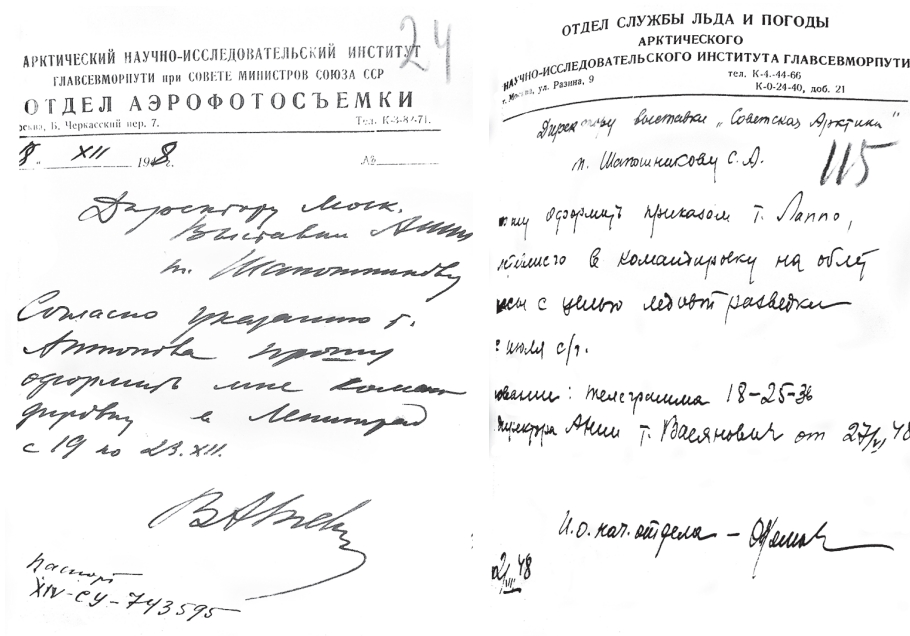 24
АРКТИЧЕСКИЙ НАУЧНО-ИССЛЕДОВАТЕЛЬСКИЙ ИНСТИТУТ
ГЛАВСЕВМОРПУТИ при СОВЕТЕ МИНИСТРОВ СОЮЗА ССР
ОТДЕЛ АЭРОФОТОСЪЕМКИ
сква, Б. Черкасский пер. 7. Тел. К-3-87-71.
XII 1948г. №
Директору Моск.
Выставки АНИИ
т. Шапошникову
Согласно указанию т.
Антонова прошу
оформить мне коман
дировку в Ленинград
с 19 по 23.XII.
Паспорт
XIV-СУ-743595
ОТДЕЛ СЛУЖБЫ ЛЬДА И ПОГОДЫ
АРКТИЧЕСКОГО
НАУЧНО-ИССЛЕДОВАТЕЛЬСКОГО ИНСТИТУТА ГЛАВСЕВМОРПУТИ
г. Москва, ул. Разина, 9 тел. К-4-44-66
К-0-24-40, доб. 21
Директору выставки „Советская Арктика"
т. Шапошникову С.А.
115
шу оформить приказом т. Лаппо,
в командировку на облёт
с целью ледовой разведки
июля с/г.
овании: телеграмма 18-25-36
директора АНИИ т. Васянович от 27/VI 48
И.о. нач. отдела –
2/VII 48